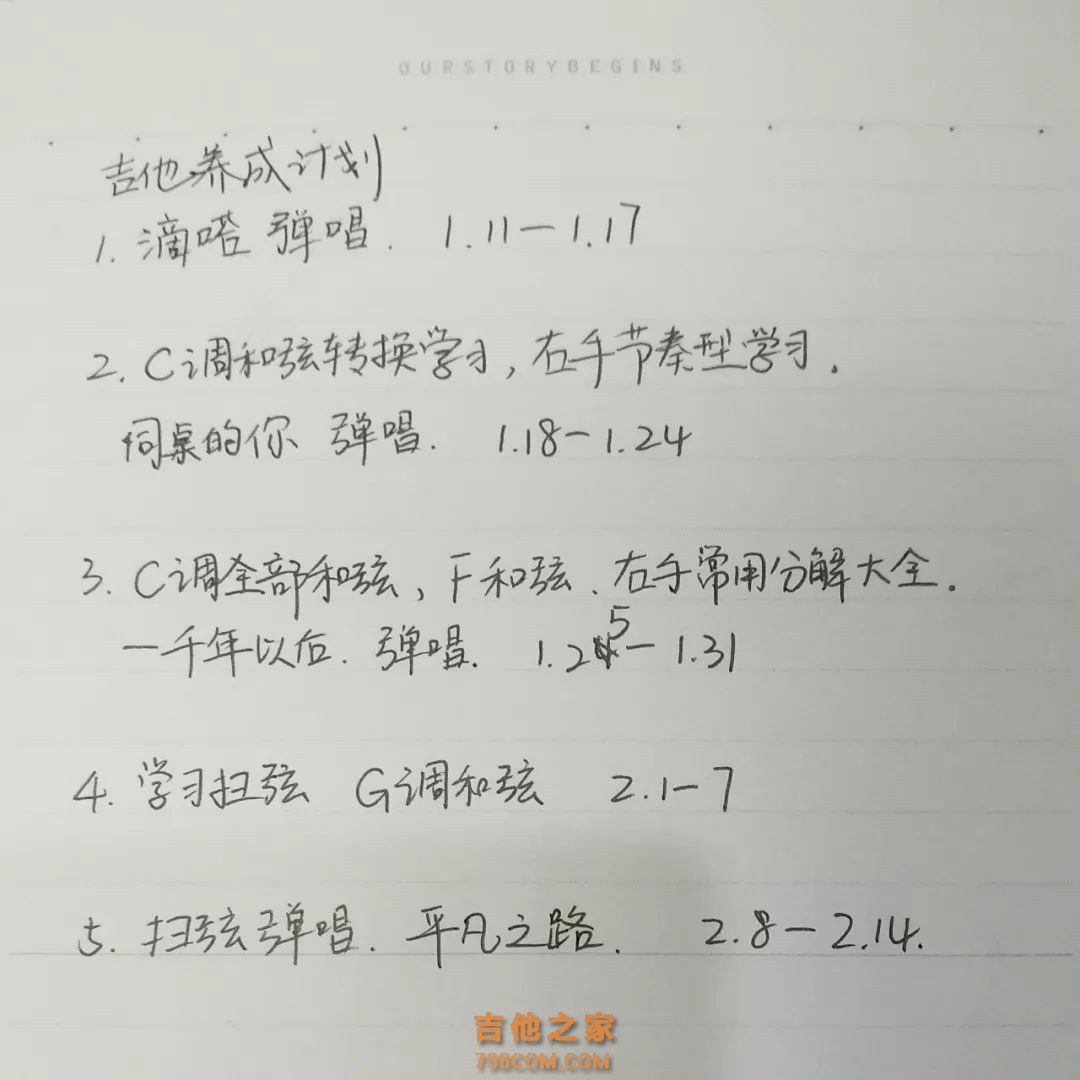 OURSTORYBEGINS
吉他养成计划
1. 滴嗒 弹唱. 1.11—1.17
2. C调和弦转换学习,右手节奏型学习.
同桌的你 弹唱. 1.18—1.24
3. C调全部和弦,F和弦、右手常用分解大全.
一千年以后. 弹唱. 1.25—1.31
4. 学习扫弦 G调和弦 2.1—7
5. 扫弦弹唱. 平凡之路. 2.8—2.14.
吉他之家
798COM.COM